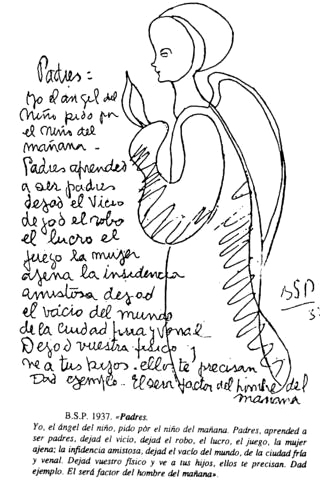 Padres =
Yo el ángel del
niño pido por
el niño del
mañana -
Padres aprended
a ser padres
dejad el vicio
dejad el robo
el lucro el
juego la mujer
ajena la insidencia
amistosa dejad
el vacio del mundo
de la ciudad fria y venal
Dejad vuestro fisico y
ve a tus hijos. ellos te precisan
Dad ejemplo. El será factor del hombre del
mañana
BSP
37
B.S.P. 1937. «Padres.
Yo, el ángel del niño, pido pór el niño del mañana. Padres, aprended a
ser padres, dejad el vicio, dejad el robo, el lucro, el juego, la mujer
ajena; la infidencia amistosa, dejad el vacío del mundo, de la ciudad fría
y venal. Dejad vuestro físico y ve a tus hijos, ellos te precisan. Dad
ejemplo. El será factor del hombre del mañana».